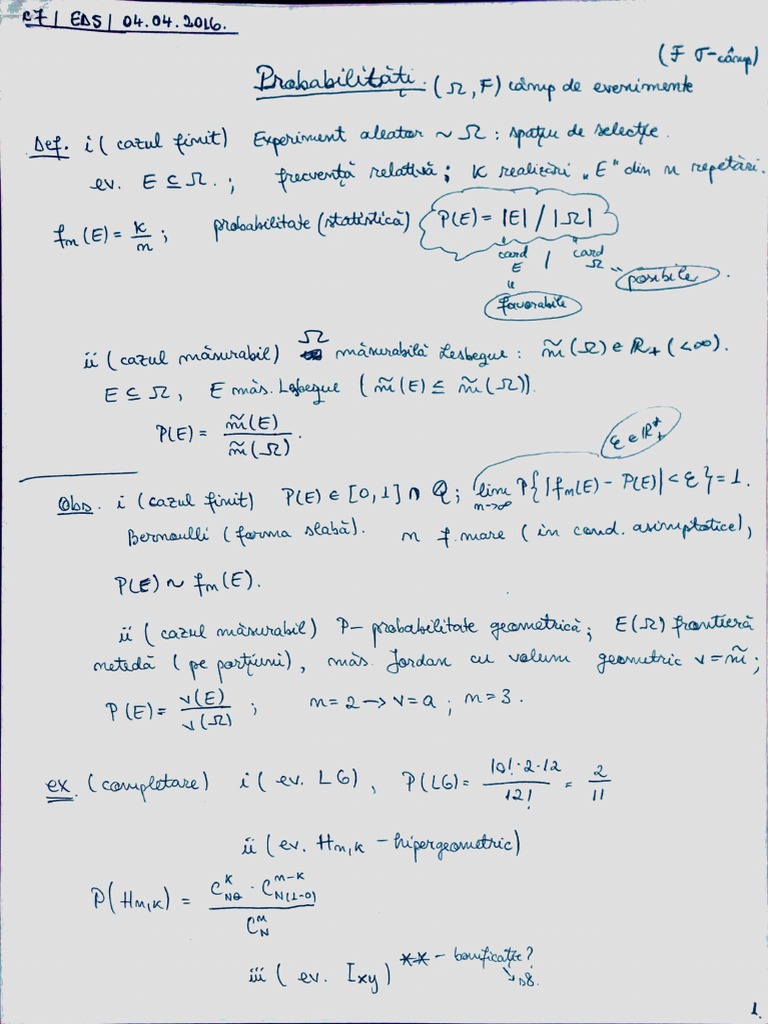 C7 | EDS | 04.04.2016.
(F σ-câmp)
Probabilități. (Ω, F) câmp de evenimente
Def. i ( cazul finit) Experiment aleator ~ Ω : spațiu de selecție.
ev. E ⊆ Ω. ; frecvență relativă ; K realizări „E" din n repetări.
fₙ(E) = k/n ; probabilitate (statistică) P(E) = |E| / |Ω|
card E | card Ω
posibile.
favorabile
ii ( cazul măsurabil) Ω măsurabilă Lesbegue : m̃(Ω) ∈ R₊ (<∞).
E ⊆ Ω, E măs. Lesbegue ( m̃(E) ≤ m̃(Ω)).
P(E) = m̃(E)/m̃(Ω).
ε ∈ R*₊
Obs. i (cazul finit) P(E) ∈ [0,1] ∩ Q; lim n→∞ P{|fₙ(E) - P(E)| < ε} = 1.
Bernoulli (forma slabă). n f. mare ( în cond. asimptotice),
P(E) ~ fₙ(E).
ii ( cazul măsurabil) P- probabilitate geometrică; E(Ω) frontieră
netedă ( pe porțiuni), măs. Jordan cu volum geometric v = m̃;
P(E) = v(E)/v(Ω) ; n=2 → v=a ; n=3.
ex (completare) i ( ev. LG), P(LG) = 10!·2·12/12! = 2/11
ii ( ev. Hn,k - hipergeometric)
P(Hn,k) = C_{Nθ}^{k} · C_{N(1-θ)}^{n-k} / C_{N}^{n}
iii ( ev. Ixy) ** - bonificație?
→ S8.
1.